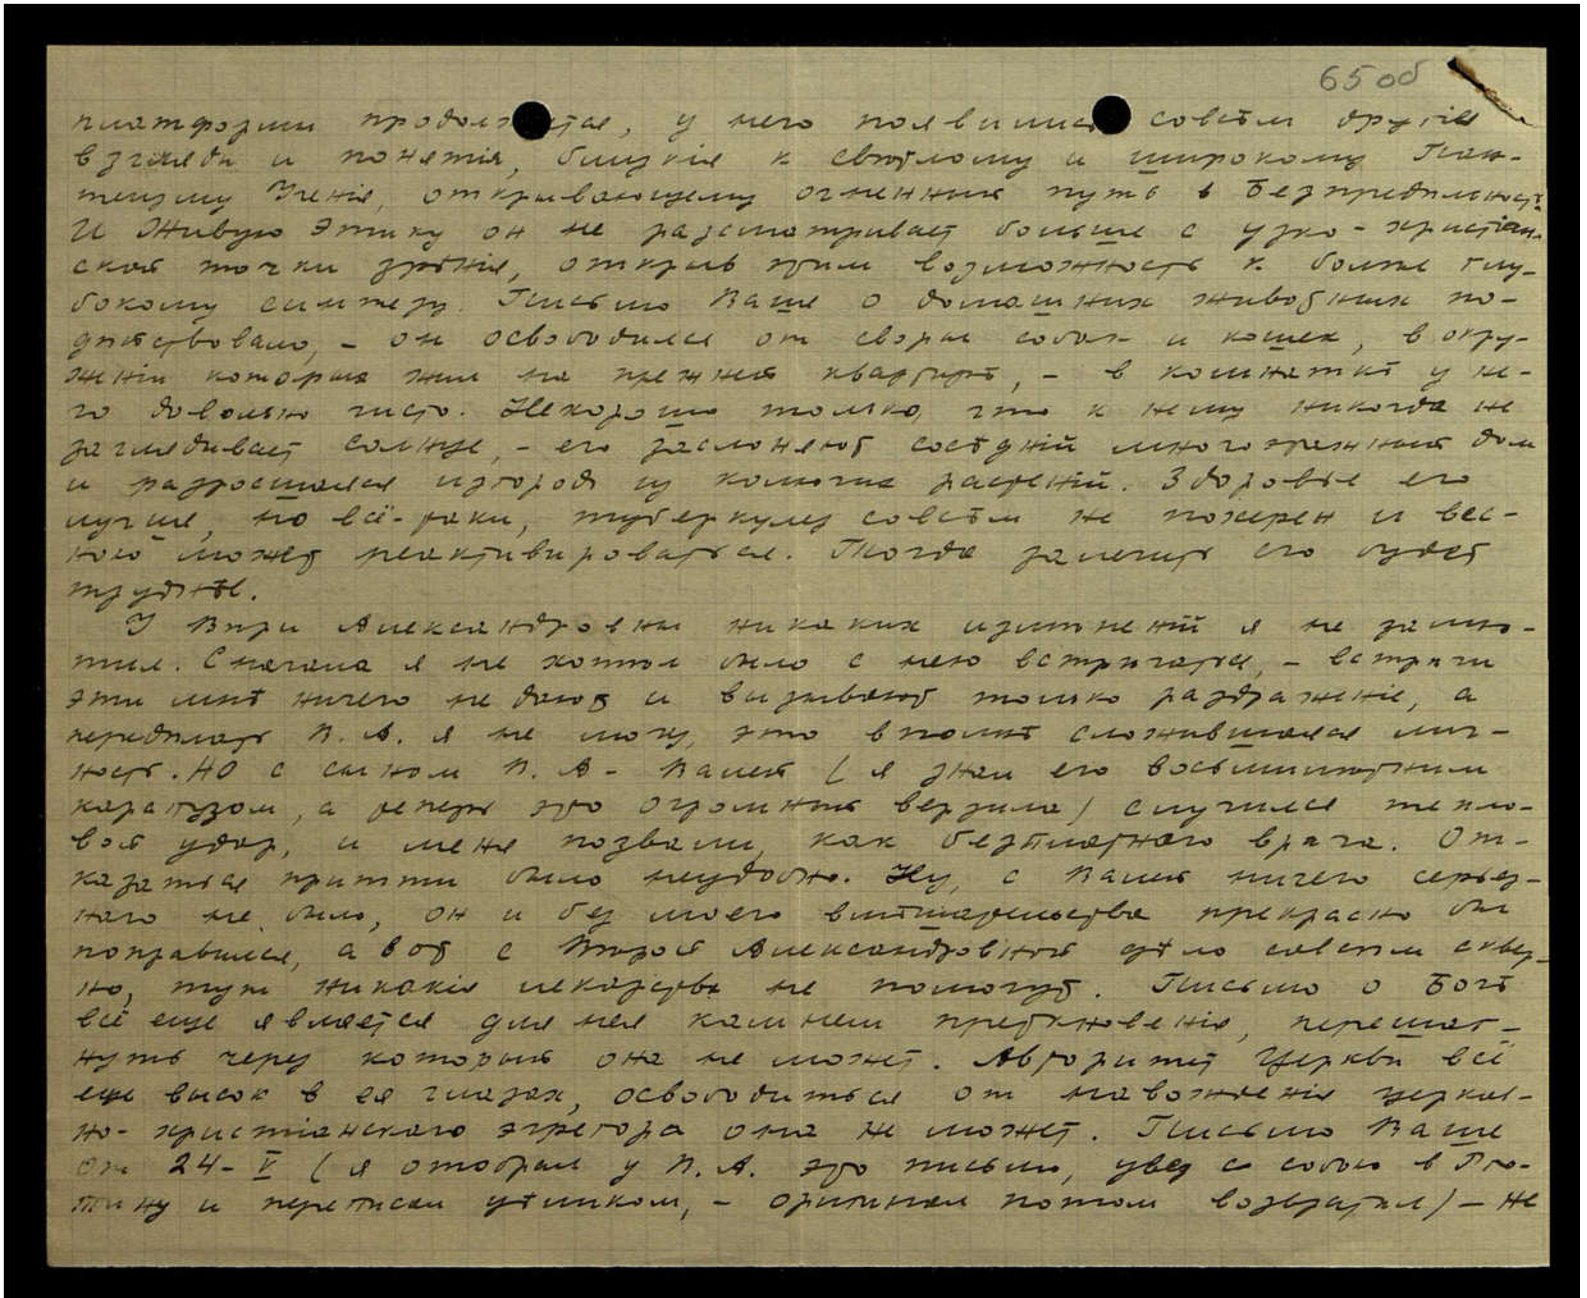 65об
платформы продолжается, у него появились совсѣм другіе
взгляды и понятія, близкія к свѣтлому и широкому Пан-
теизму Ученія, открывающему огненный путь в Безпредѣльность.
И Живую Этику он не разсматривает больше с узко-христіан-
ской точки зрѣнія, открыв этим возможность к болѣе глу-
бокому синтезу. Письмо Ваше о домашних животных по-
дѣйствовало, – он освободился от своры собак и кошек, в окру-
женіи которых жил на прежней квартирѣ, – в комнаткѣ у не-
го довольно чисто. Нехорошо только, что к нему никогда не
заглядывает солнце, – его заслоняют сосѣдній многоэтажный дом
и разросшаяся изгородь из колючих растеній. Здоровье его
лучше, но всё-таки, туберкулез совсѣм не похерен и вес-
ною может реактивироваться. Тогда залечить его будет
труднѣе.
У Вѣры Александровны никаких измѣненій я не замѣ-
тил. Сначала я не хотѣл было с нею встрѣчаться, – встрѣчи
эти мнѣ ничего не дают и вызывают только раздраженіе, а
передѣлать В. А. я не могу, это вполнѣ сложившаяся лич-
ность. Но с сыном В. А. – Валей (я знал его восьмилѣтним
карапузом, а теперь это огромный верзила) случился тепло-
вой удар, и меня позвали, как безплатного врача. От-
казаться притти было неудобно. Ну, с Валей ничего серьез-
наго не было, он и без моего вмѣшательства прекрасно бы
поправился, а вот с Вѣрой Александровной дѣло совсѣм сквер-
но, тут никакія лекарства не помогут. Письмо о Богѣ
всё еще является для нея камнем преткновенія, перешаг-
нуть через который она не может. Авторитет Церкви всё
еще высок в ея глазах, освободиться от навожденія церков-
но-христіанскаго эгрегора она не может. Письмо Ваше
от 24-V (я отобрал у В. А. это письмо, увез с собою в
и переписал цѣликом, – оригинал потом возвратил) – не